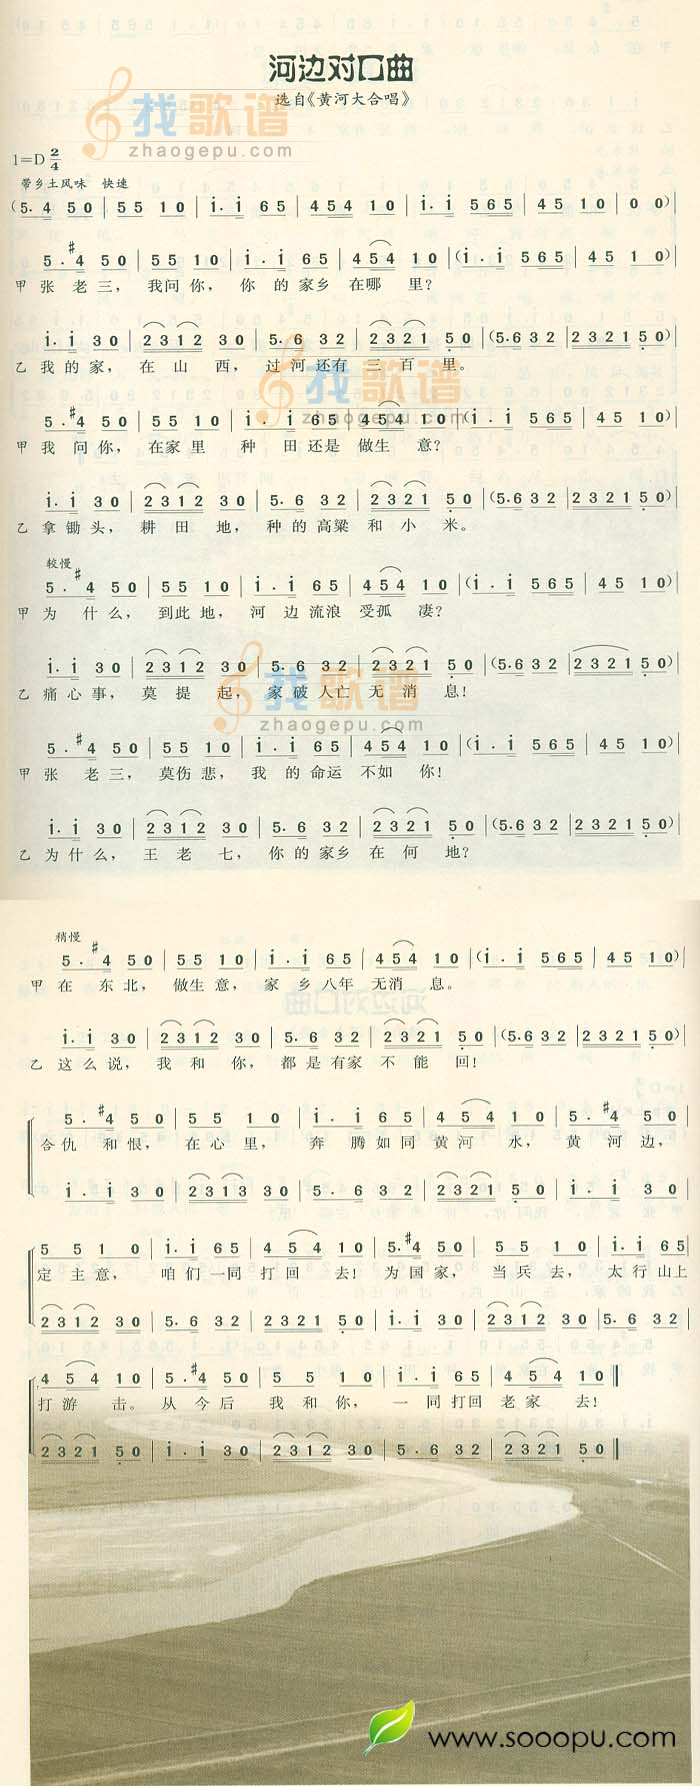 河边对口曲
选自《黄河大合唱》
找歌谱
zhaogepu.com
1=D 2/4
带乡土风味 快速
(5. 4 5 0 | 5 5 1 0 | i. i 6 5 | 4 5 4 1 0 | i. i 5 6 5 | 4 5 1 0 | 0 0)|
5. #4 5 0 | 5 5 1 0 | i. i 6 5 | 4 5 4 1 0 |(i. i 5 6 5 | 4 5 1 0)|
甲张 老三, 我问你, 你 的家乡 在哪 里?
i. i 3 0 | 2 3 1 2 3 0 | 5. 6 3 2 | 2 3 2 1 5 0 |(5. 6 3 2 | 2 3 2 1 5 0)|
乙我的家, 在 山 西, 过河还有 三 百 里。
找歌谱
zhaogepu.com
5. #4 5 0 | 5 5 1 0 | i. i 6 5 | 4 5 4 1 0 |(i. i 5 6 5 | 4 5 1 0)|
甲我 问你, 在家里 种 田还是 做生 意?
i. i 3 0 | 2 3 1 2 3 0 | 5. 6 3 2 | 2 3 2 1 5 0 |(5. 6 3 2 | 2 3 2 1 5 0)|
乙拿锄头, 耕 田 地, 种的高粱 和 小 米。
较慢
5. #4 5 0 | 5 5 1 0 | i. i 6 5 | 4 5 4 1 0 |(i. i 5 6 5 | 4 5 1 0)|
甲为 什么, 到此地, 河 边流浪 受孤 凄?
i. i 3 0 | 2 3 1 2 3 0 | 5. 6 3 2 | 2 3 2 1 5 0 |(5. 6 3 2 | 2 3 2 1 5 0)|
乙痛心事, 莫 提 起, 家破人亡 无 消 息!
找歌谱
zhaogepu.com
5. #4 5 0 | 5 5 1 0 | i. i 6 5 | 4 5 4 1 0 |(i. i 5 6 5 | 4 5 1 0)|
甲张 老三, 莫伤悲, 我 的命运 不如 你!
i. i 3 0 | 2 3 1 2 3 0 | 5. 6 3 2 | 2 3 2 1 5 0 |(5. 6 3 2 | 2 3 2 1 5 0)|
乙为什么, 王 老 七, 你的家乡 在 何 地?
稍慢
5. #4 5 0 | 5 5 1 0 | i. i 6 5 | 4 5 4 1 0 |(i. i 5 6 5 | 4 5 1 0)|
甲在 东北, 做生意, 家 乡八年 无消 息。
i. i 3 0 | 2 3 1 2 3 0 | 5. 6 3 2 | 2 3 2 1 5 0 |(5. 6 3 2 | 2 3 2 1 5 0)|
乙这么说, 我 和 你, 都是有家 不 能 回!
5. #4 5 0 | 5 5 1 0 | i. i 6 5 | 4 5 4 1 0 | 5. #4 5 0 |
合仇 和恨, 在心里, 奔 腾如同 黄河 水, 黄 河边,
i. i 3 0 | 2 3 1 3 3 0 | 5. 6 3 2 | 2 3 2 1 5 0 | i. i 3 0 |
5 5 1 0 | i. i 6 5 | 4 5 4 1 0 | 5. #4 5 0 | 5 5 1 0 | i. i 6 5
定主意, 咱们一同 打回 去! 为国家, 当兵去, 太行山上
2 3 1 2 3 0 | 5. 6 3 2 | 2 3 2 1 5 0 | i. i 3 0 | 2 3 1 2 3 0 | 5. 6 3 2
4 5 4 1 0 | 5. #4 5 0 | 5 5 1 0 | i. i 6 5 | 4 5 4 1 0 ‖
打游 击。 从今后 我和你, 一同打回 老家 去!
2 3 2 1 5 0 | i. i 3 0 | 2 3 1 2 3 0 | 5. 6 3 2 | 2 3 2 1 5 0 ‖
www.sooopu.com